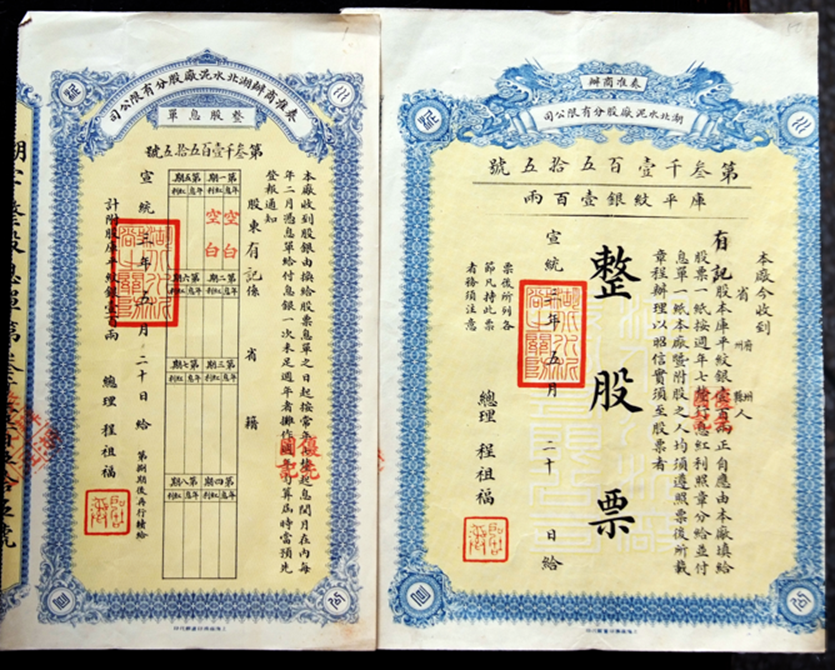 奏准商辦
湖北水泥廠股分有限公司
第叁千壹百五拾五號
庫平紋銀壹百兩
本廠今收到
省 府州 州縣 人
有記股本庫平紋銀壹百兩正自應由本廠填給
股票一紙按週年七釐行息紅利照章分給並付
息單一紙本廠暨附股之人均須遵照票後所載
章程辦理以昭信實須至股票者
整股票
宣統二年五月二十日給
票後所列各
節凡持此票
者務須注意
總理 程祖福
奏准商辦湖北水泥廠股分有限公司
整股息單
第叁千壹百五拾五號
本廠收到股銀由換給股票息單之日起按常年七釐起息閏月在內每
年二月憑息單給付息銀一次未足週年者攤作日算屆時當預先
登報通知
股東有記係 省 籍
第一期 第五期
年息 紅利 年息 紅利
空白 空白
第二期 第六期
年息 紅利 年息 紅利
第三期 第七期
年息 紅利 年息 紅利
第四期 第八期
年息 紅利 年息 紅利
宣統二年五月二十日給
第捌期後再行續給
計附股庫平紋銀壹百兩
總理 程祖福